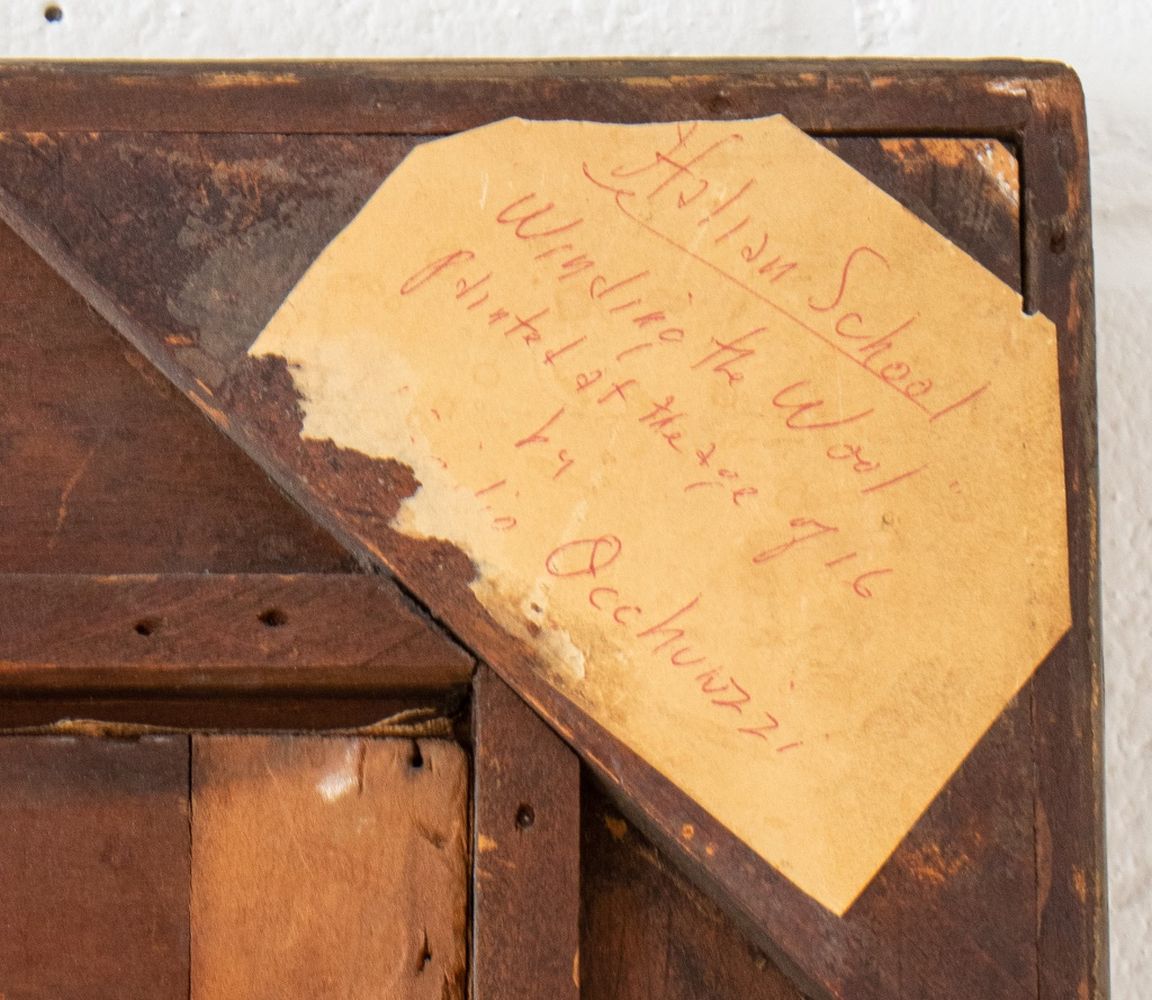 Italian School
Winding the Wool"
painted at the age of 16
by
Occhiuzzi